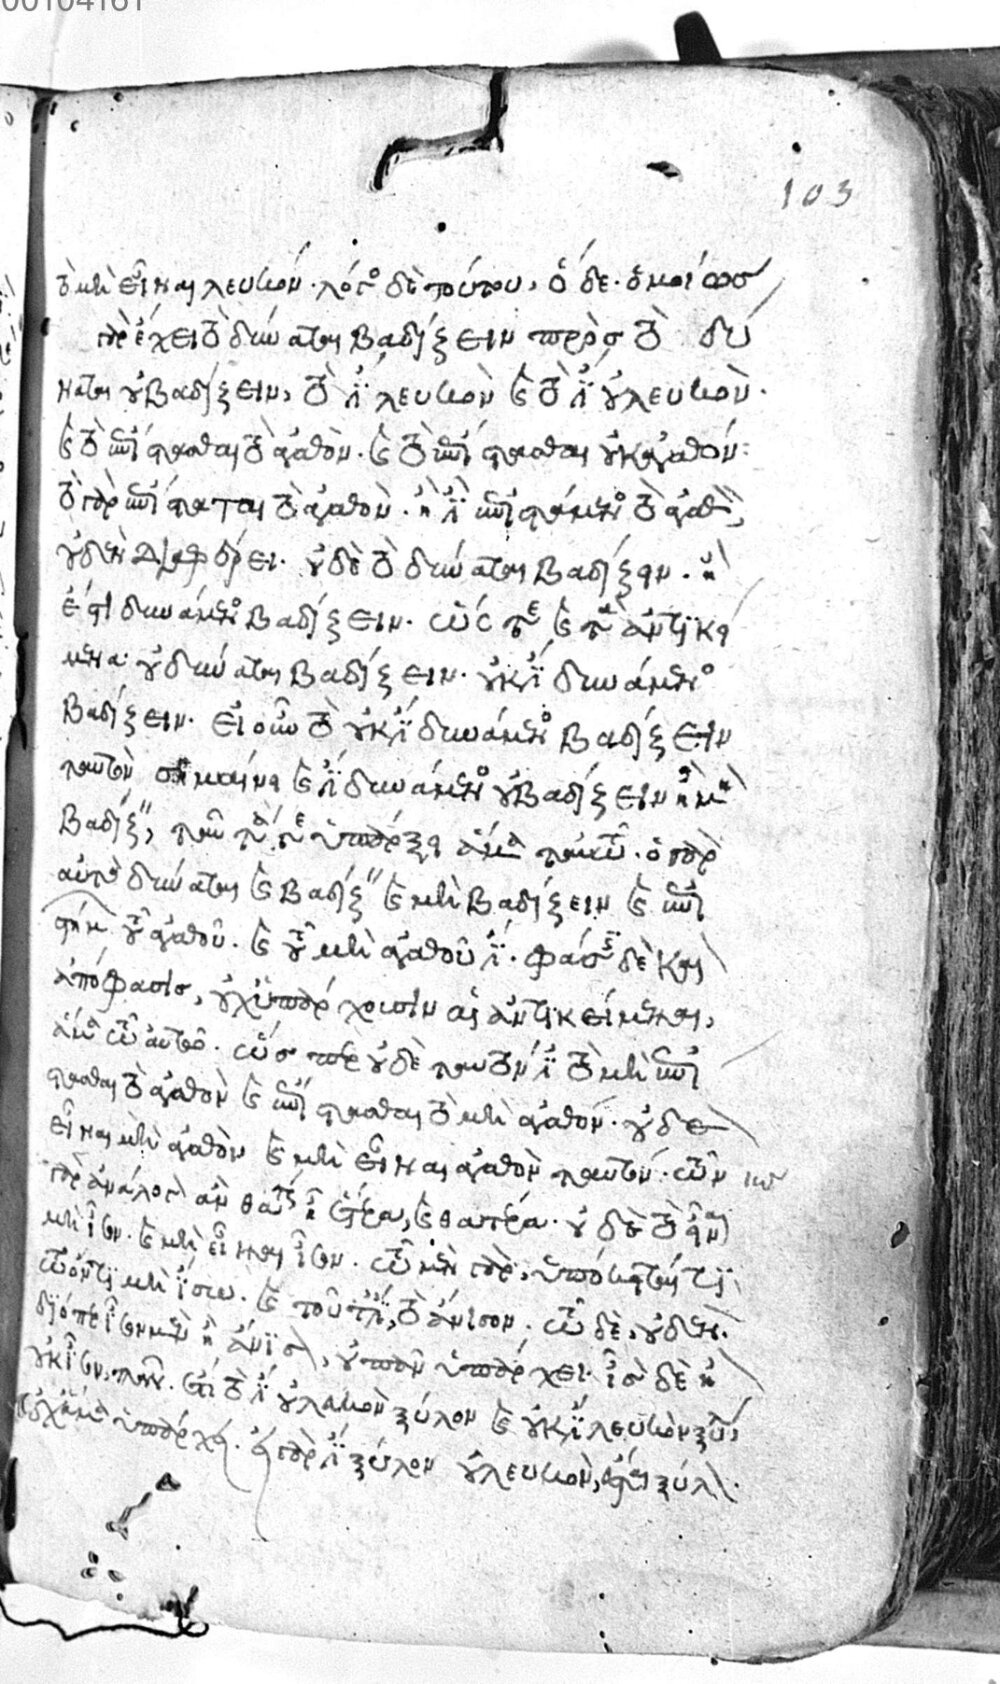 00104161
103
τὸ μὴ εἶναι λευκόν. λόγος δὲ τούτου, ὅδε. ὁμοίως
γὰρ ἔχει τὸ δύναται βαδίζειν πρὸς τὸ δύ
ναται οὐ βαδίζειν, τῷ ἔστι λευκὸν καὶ τὸ ἔστι οὐ λευκὸν.
καὶ τὸ ἐπίστασθαι τὸ ἀγαθὸν. καὶ τὸ ἐπίστασθαι οὐκ ἀγαθόν:
τὸ γὰρ ἐπίσταται τὸ ἀγαθὸν. ἢ ἔστιν ἐπιστάμενος τὸ ἀγαθὸν,
οὐδὲν διαφέρει. οὐδὲ τὸ δύναται βαδίζειν. ἢ
ἔστι δυνάμενος βαδίζειν. ὥστε καὶ τὰ ἀντικεί
μενα οὐ δύναται βαδίζειν. οὐκ ἔστι δυνάμενος
βαδίζειν. εἰ οὖν τὸ οὐκ ἔστι δυνάμενος βαδίζειν
ταυτὸν σημαίνει καὶ ἔστι δυνάμενος οὐ βαδίζειν ἢ μὴ
βαδίζειν, ταῦτά γε ὑπάρξει ἅμα ταυτῷ. ὁ γὰρ
αὐτὸς δύναται καὶ βαδίζειν καὶ μὴ βαδίζειν καὶ ἐπι
στήμων τοῦ ἀγαθοῦ. καὶ τοῦ μὴ ἀγαθοῦ ἔστι. φάσις δὲ καὶ
ἀπόφασις, οὐχ ὑπάρχουσιν αἱ ἀντικείμεναι,
ἅμα τῷ αὐτῷ. ὥσπερ οὐδὲ ταυτόν ἔστι τὸ μὴ ἐπί
στασθαι τὸ ἀγαθὸν καὶ ἐπίστασθαι τὸ μὴ ἀγαθόν. οὐδὲ
εἶναι μὴ ἀγαθὸν καὶ μὴ εἶναι ἀγαθὸν ταυτόν. τῶν
γὰρ ἀνάλογον ἂν θάτερα ᾖ ἕτερα, καὶ θάτερα. οὐδὲ τὸ εἶναι
μὴ ἴσον. καὶ μὴ εἶναι ἴσον. τῷ μὲν γὰρ, ὑπόκειταί τι
τῷ ὄντι μὴ ἴσῳ. καὶ τοῦτ' ἔστι, τὸ ἄνισον. τῷ δὲ, οὐδέν.
διόπερ ἴσον μὲν ἢ ἄνισον, οὐ πᾶν ὑπάρχει. ἴσον δὲ ἢ
οὐκ ἴσον, πᾶν. ἔτι τὸ ἔστι οὐ λευκὸν ξύλον καὶ οὐκ ἔστι λευκὸν ξύλον,
οὐχ ἅμα ὑπάρχει. εἰ γὰρ ἔστι ξύλον οὐ λευκὸν, ἔσται ξύλον.